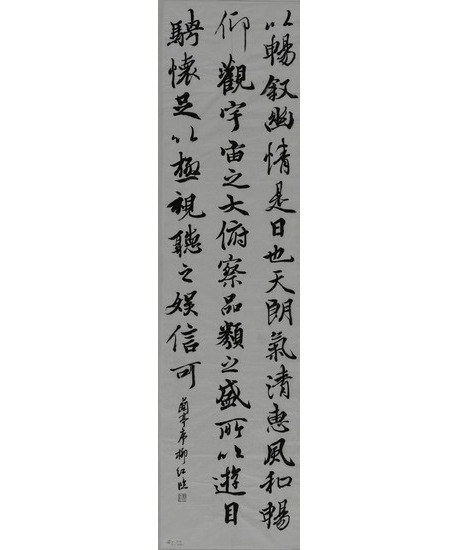 以暢叙幽情是日也天朗氣清惠風和暢
仰觀宇宙之大俯察品類之盛所以遊目
騁懷足以極視聽之娱信可
蘭亭序柳红